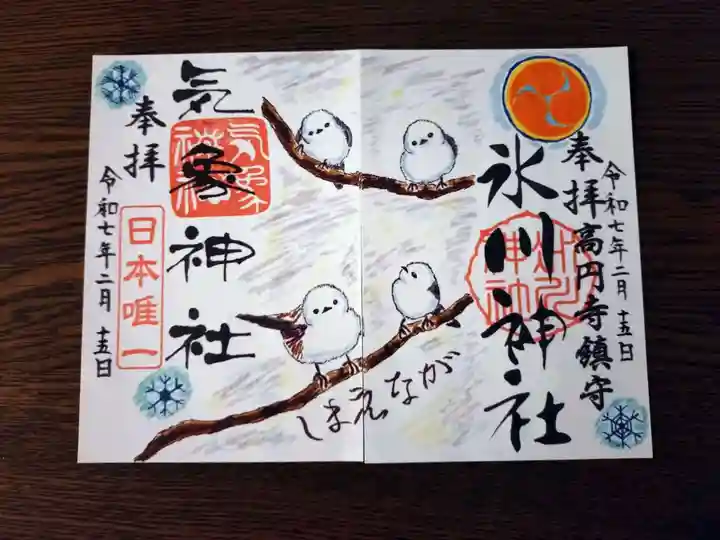 令和七年二月十五日
奉拝高円寺鎮守
氷川神社
氷川神社
しまえなが
気象神社
気象神社
奉拝
日本唯一
令和七年二月十五日